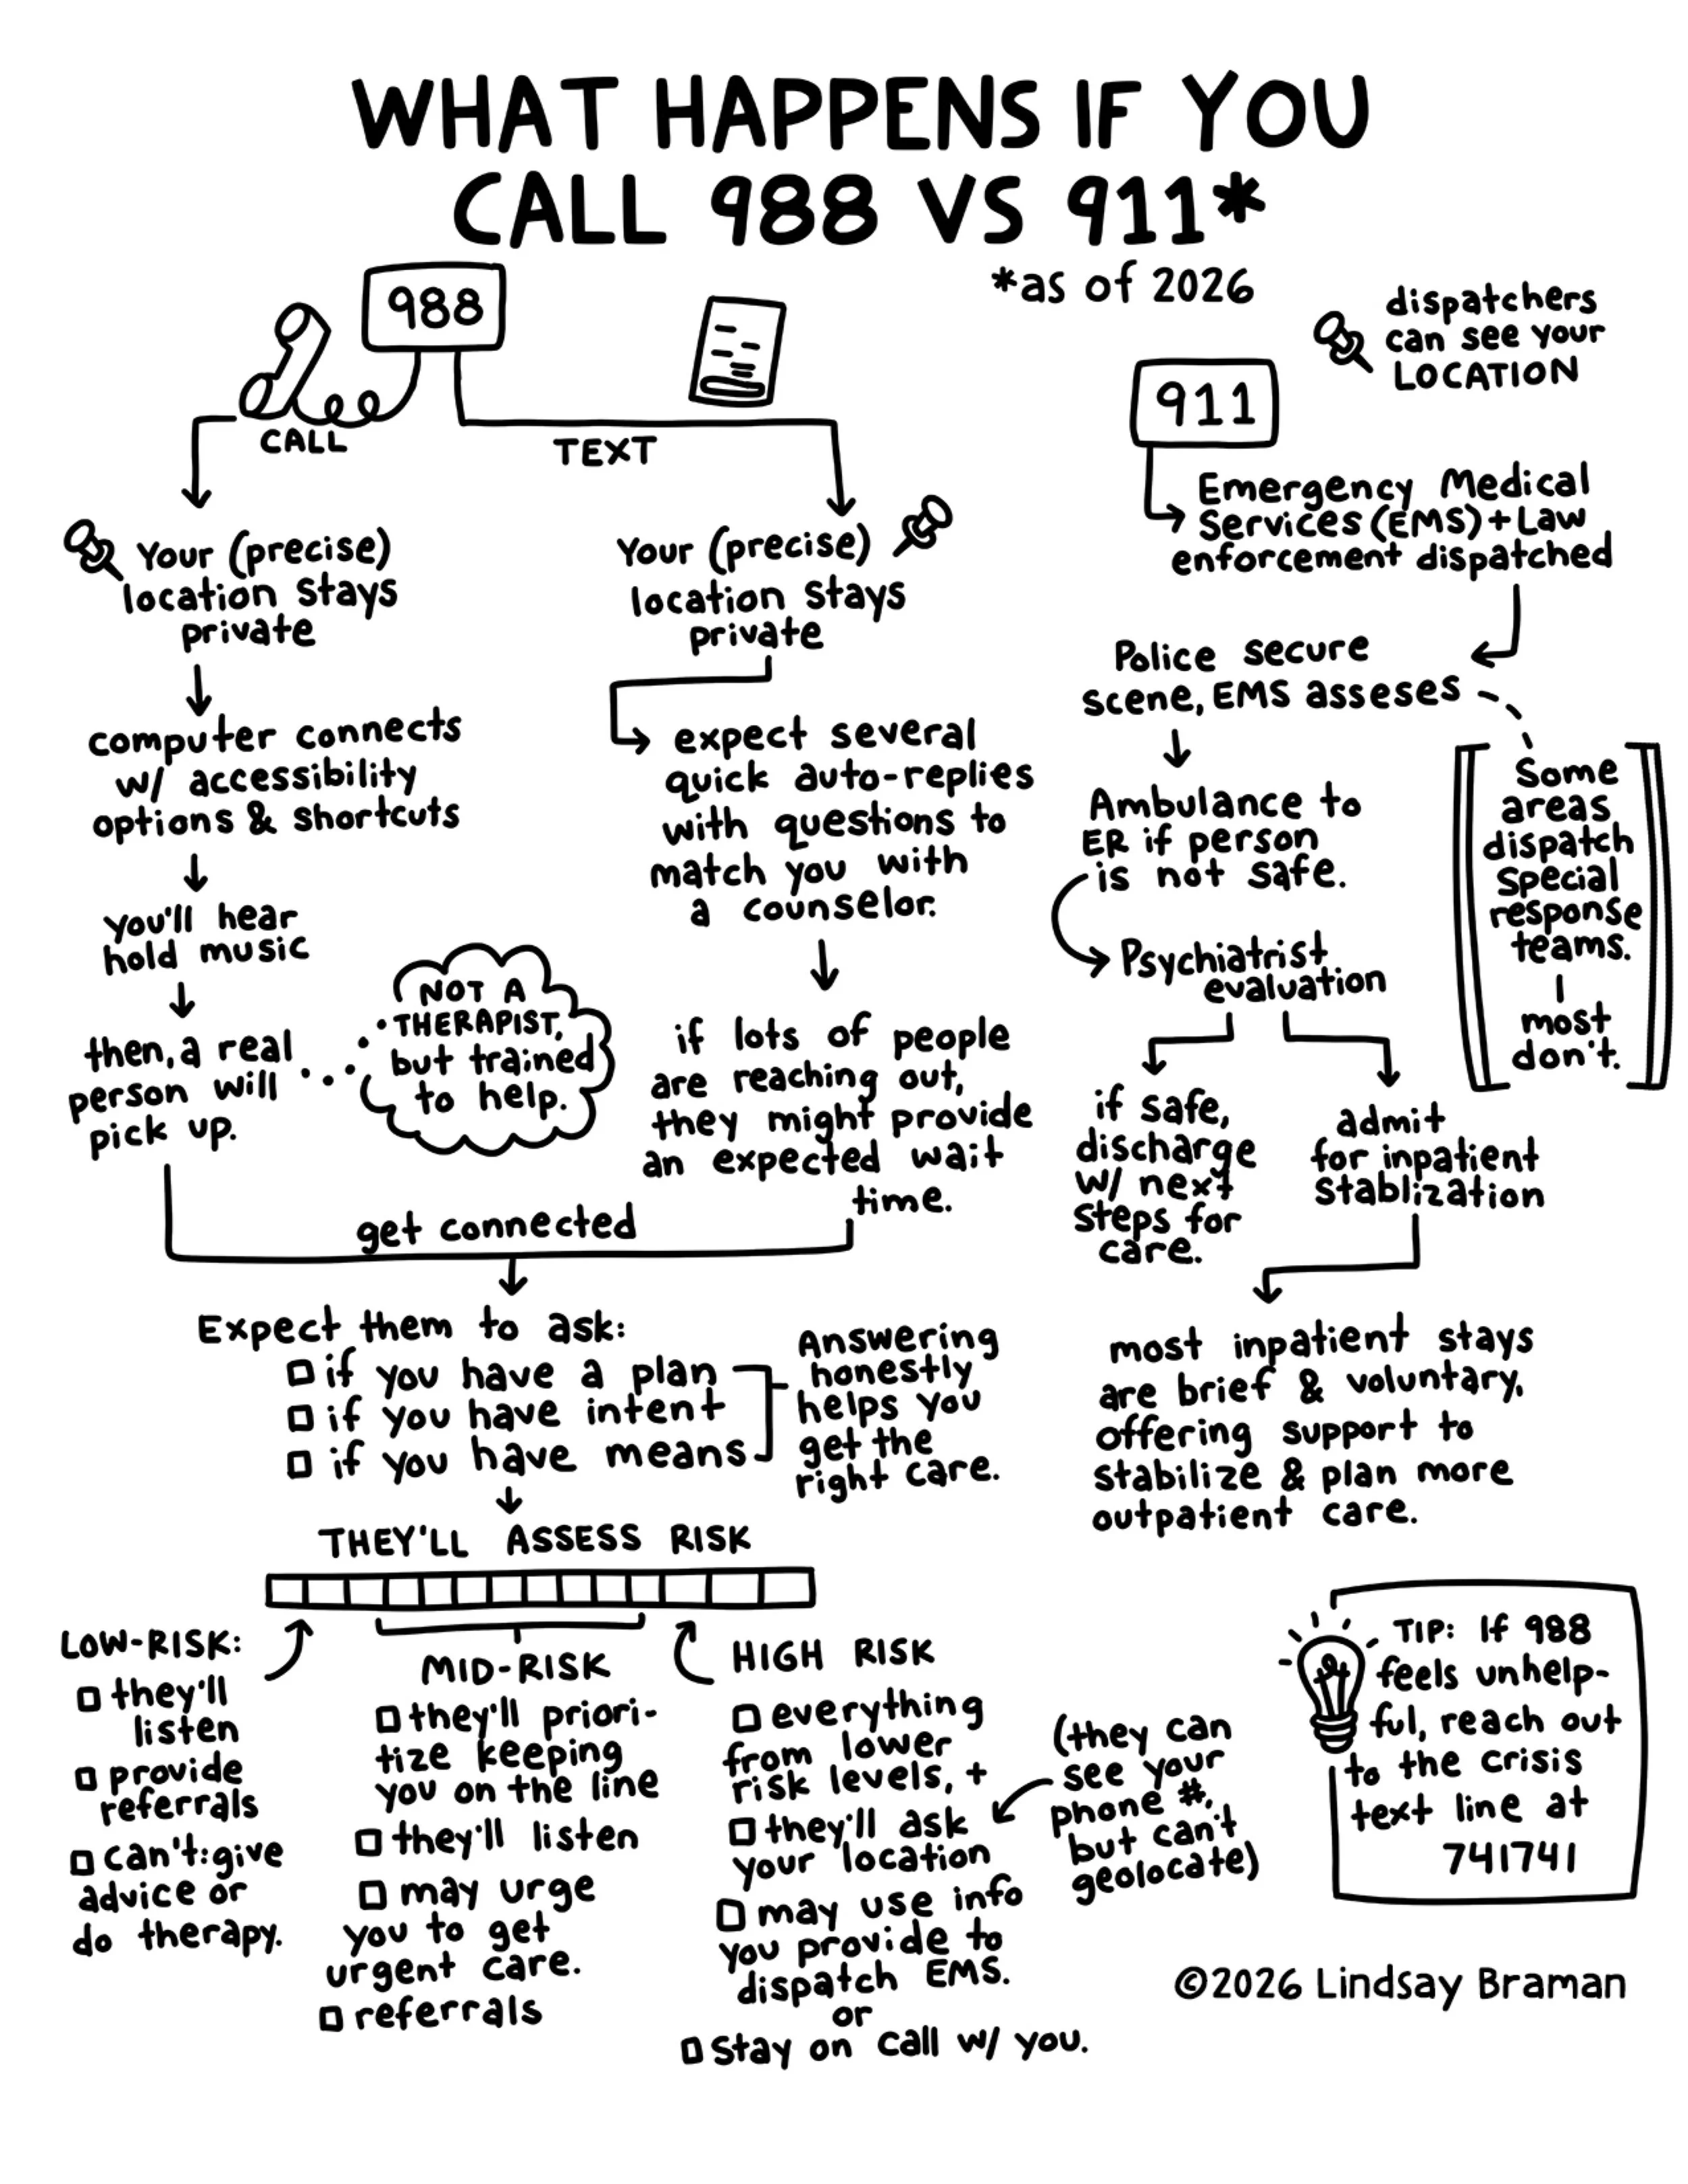 WHAT HAPPENS IF YOU
CALL 988 VS 911*
*as of 2026
988
CALL
TEXT
Your (precise)
location stays
private
computer connects
w/ accessibility
options & shortcuts
you'll hear
hold music
then, a real
person will
pick up.
NOT A
THERAPIST,
but trained
to help.
Your (precise)
location stays
private
expect several
quick auto-replies
with questions to
match you with
a counselor.
if lots of people
are reaching out,
they might provide
an expected wait
time.
get connected
Expect them to ask:
if you have a plan
if you have intent
if you have means
Answering
honestly
helps you
get the
right care.
THEY'LL ASSESS RISK
LOW-RISK:
they'll
listen
provide
referrals
can't: give
advice or
do therapy.
MID-RISK
they'll priori-
tize keeping
you on the line
they'll listen
may urge
you to get
urgent care.
referrals
HIGH RISK
everything
from lower
risk levels, +
they'll ask
your location
may use info
you provide to
dispatch EMS.
or
stay on call w/ you.
(they can
see your
phone #,
but can't
geolocate)
911
dispatchers
can see your
LOCATION
Emergency Medical
Services (EMS) + Law
enforcement dispatched
Police secure
scene, EMS asseses
Some
areas
dispatch
special
response
teams.
most
don't.
Ambulance to
ER if person
is not safe.
Psychiatrist
evaluation
if safe,
discharge
w/ next
steps for
care.
admit
for inpatient
stablization
most inpatient stays
are brief & voluntary,
offering support to
stabilize & plan more
outpatient care.
TIP: If 988
feels unhelp-
ful, reach out
to the crisis
text line at
741741
©2026 Lindsay Braman